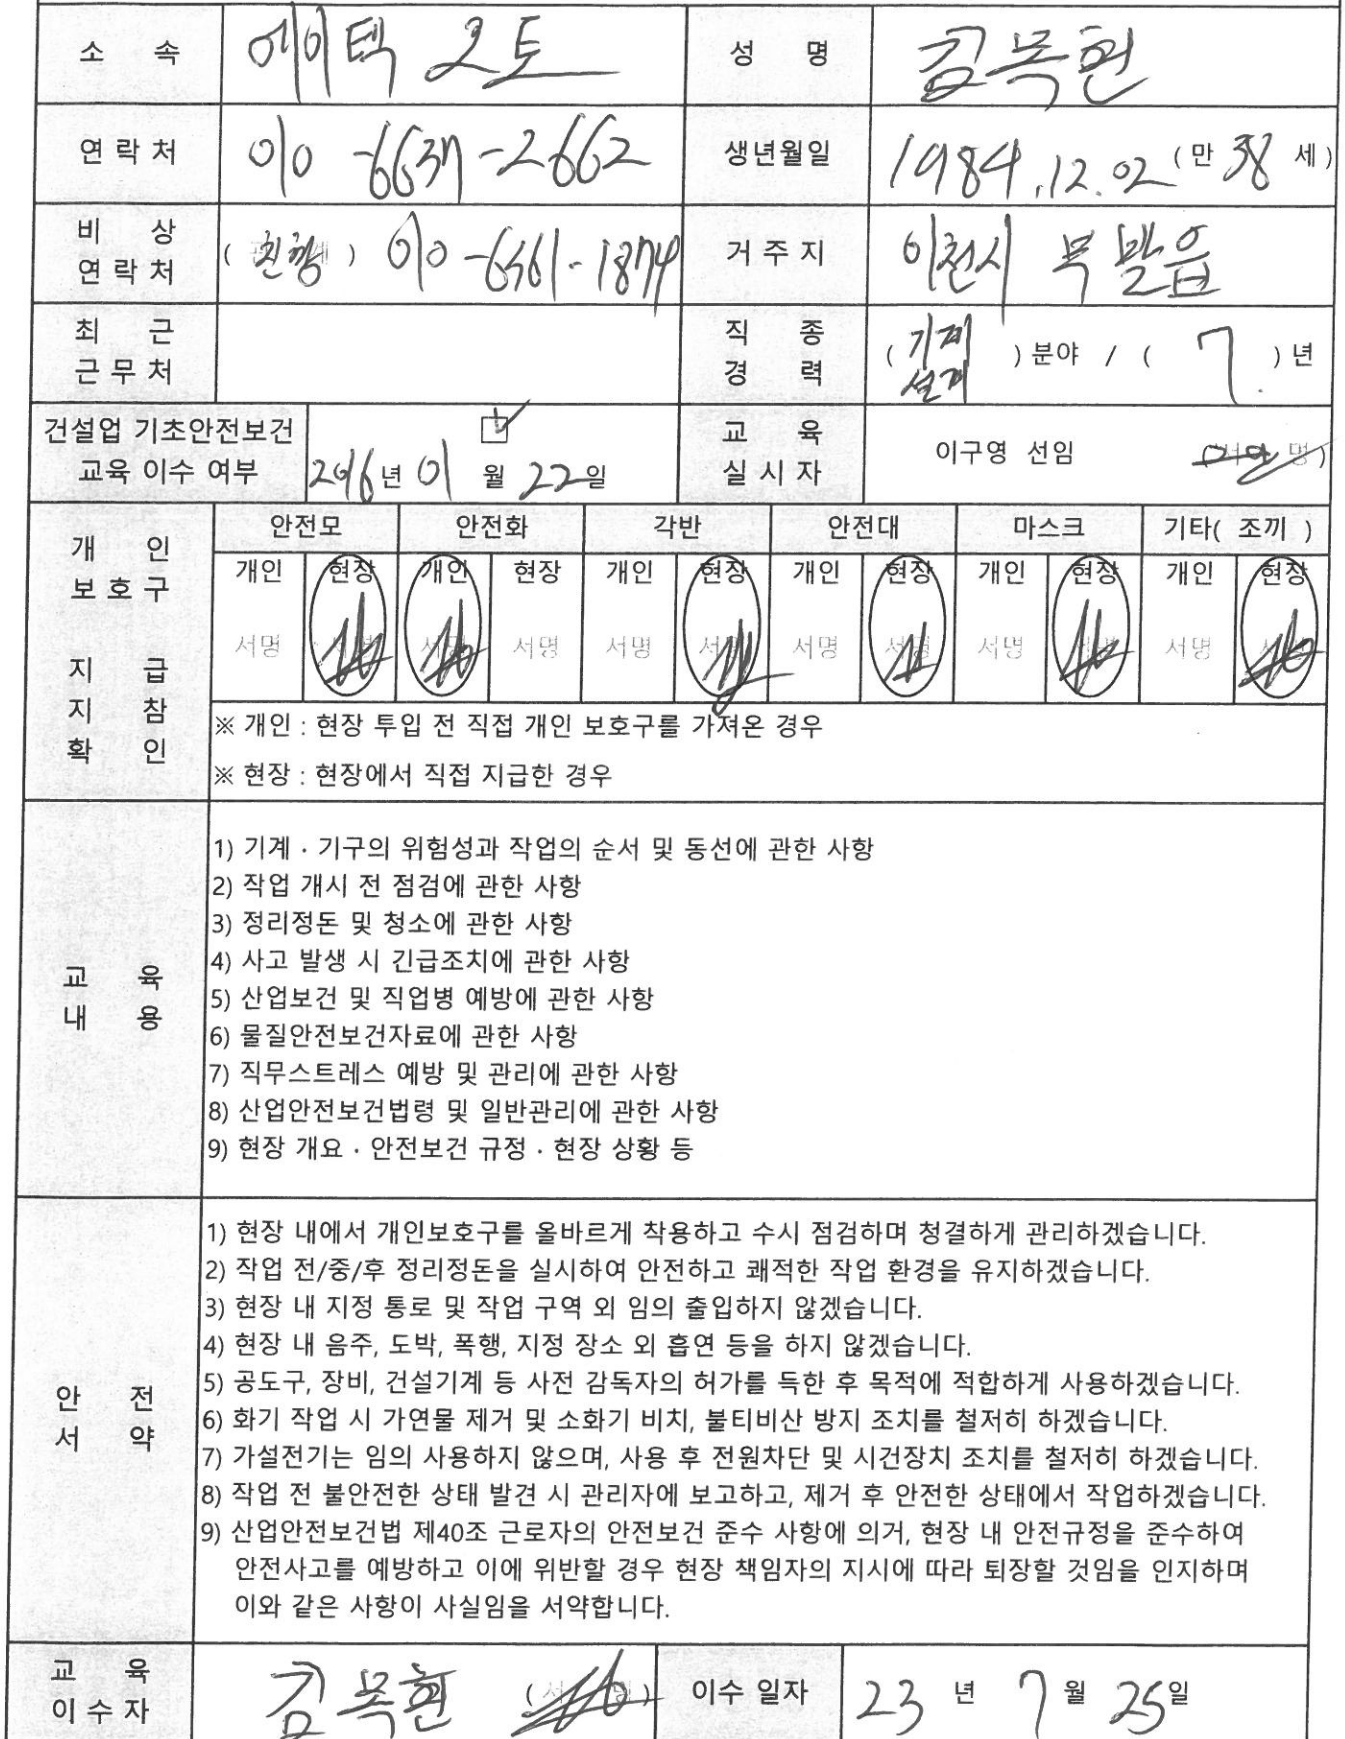 소 속 에이텍 오토 성 명 김목현
연락처 010-6637-2662 생년월일 1984.12.02 (만 38 세)
비 상 연락처 (친형) 010-6461-1874 거주지 이천시 부발읍
최 근 근무처 직 종 경 력 (기계 설계) 분야 / ( 7 ) 년
건설업 기초안전보건 교육 이수 여부 2016년 01월 22일 교 육 실시자 이구영 선임 (서 명)
개 인 보호구 지 급 지 참 확 인
안전모 안전화 각반 안전대 마스크 기타( 조끼 )
개인 현장 개인 현장 개인 현장 개인 현장 개인 현장 개인 현장
서명 서명 서명 서명 서명 서명 서명 서명 서명 서명 서명 서명
※ 개인 : 현장 투입 전 직접 개인 보호구를 가져온 경우
※ 현장 : 현장에서 직접 지급한 경우
교 육 내 용
1) 기계 · 기구의 위험성과 작업의 순서 및 동선에 관한 사항
2) 작업 개시 전 점검에 관한 사항
3) 정리정돈 및 청소에 관한 사항
4) 사고 발생 시 긴급조치에 관한 사항
5) 산업보건 및 직업병 예방에 관한 사항
6) 물질안전보건자료에 관한 사항
7) 직무스트레스 예방 및 관리에 관한 사항
8) 산업안전보건법령 및 일반관리에 관한 사항
9) 현장 개요 · 안전보건 규정 · 현장 상황 등
안 전 서 약
1) 현장 내에서 개인보호구를 올바르게 착용하고 수시 점검하며 청결하게 관리하겠습니다.
2) 작업 전/중/후 정리정돈을 실시하여 안전하고 쾌적한 작업 환경을 유지하겠습니다.
3) 현장 내 지정 통로 및 작업 구역 외 임의 출입하지 않겠습니다.
4) 현장 내 음주, 도박, 폭행, 지정 장소 외 흡연 등을 하지 않겠습니다.
5) 공도구, 장비, 건설기계 등 사전 감독자의 허가를 득한 후 목적에 적합하게 사용하겠습니다.
6) 화기 작업 시 가연물 제거 및 소화기 비치, 불티비산 방지 조치를 철저히 하겠습니다.
7) 가설전기는 임의 사용하지 않으며, 사용 후 전원차단 및 시건장치 조치를 철저히 하겠습니다.
8) 작업 전 불안전한 상태 발견 시 관리자에 보고하고, 제거 후 안전한 상태에서 작업하겠습니다.
9) 산업안전보건법 제40조 근로자의 안전보건 준수 사항에 의거, 현장 내 안전규정을 준수하여
안전사고를 예방하고 이에 위반할 경우 현장 책임자의 지시에 따라 퇴장할 것임을 인지하며
이와 같은 사항이 사실임을 서약합니다.
교 육 이수자 김목현 (서 명) 이수 일자 23 년 7 월 25일